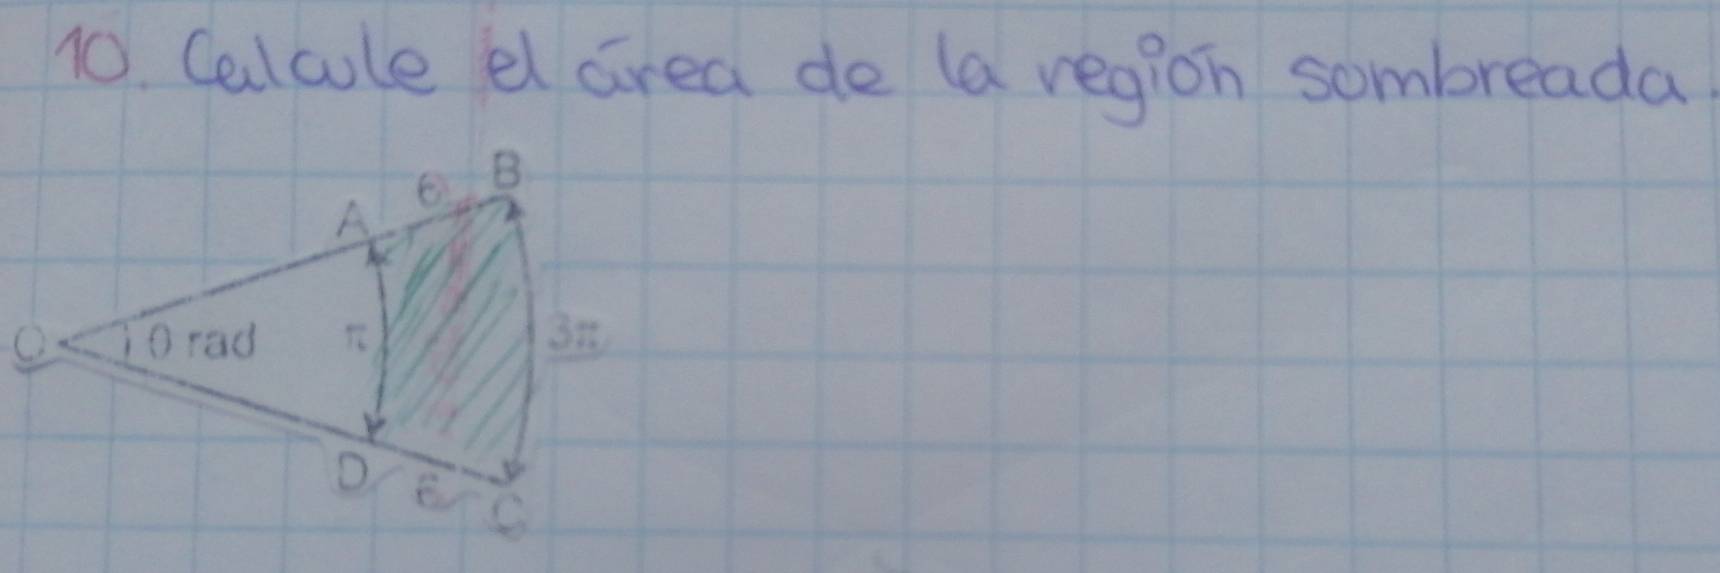 10. Calcule el área de la región sombreada.
B
6
A
O
θ rad
π
3π
D
6
C